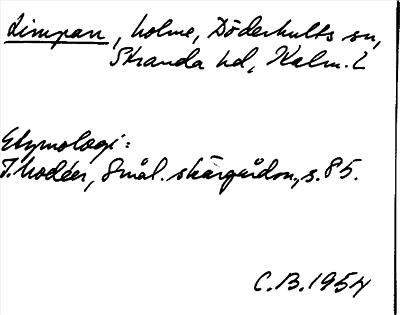 Limpan, holme, Döderhults sn,
Stranda hd, Kalm. l
Etymologi:
I. Modéer, Smål. skärgårdsn., s. 85.
C.B. 1954